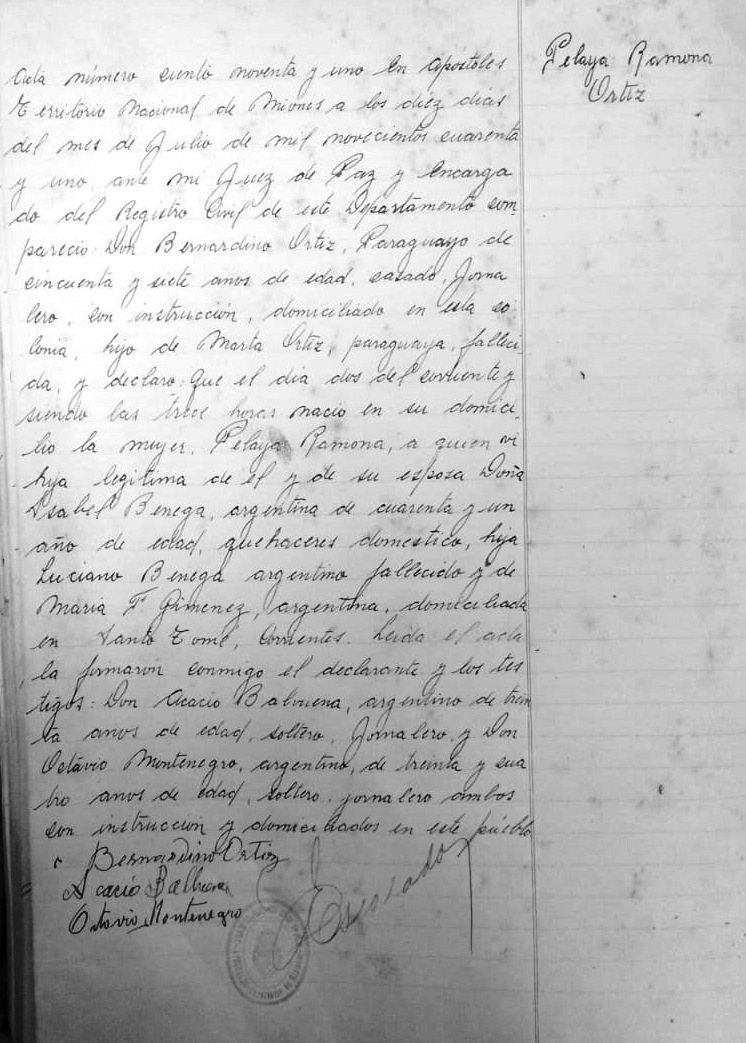 Pelaya Ramona
Ortiz
Acta número ciento noventa y uno En Apóstoles
Territorio Nacional de Misiones a los diez dias
del mes de Julio de mil novecientos cuarenta
y uno ante mi Juez de Paz y Encarga
do del Registro Civil de este Departamento com
parecio: Don Bernardino Ortiz, Paraguayo de
cincuenta y siete anos de edad, casado, Jorna
lero, con instrucción, domiciliado en esta co
lonia, hijo de Marta Ortiz, paraguaya, falleci
da, y declaro: Que el dia dos del corriente y
siendo las trece horas nacio en su domici
lio la mujer, Pelaya Ramona, a quien vi
hija legitima de el y de su esposa Doña
Isabel Benega, argentina de cuarenta y un
año de edad, quehaceres domestico, hija
Luciano Benega argentino fallecido y de
Maria F. Gimenez, argentina, domiciliada
en Santo Tomé, Corrientes. Leida el acta
la firmaron conmigo el declarante y los tes
tigos: Don Acacio Balbuena, argentino de trein
ta anos de edad, soltero, Jornalero, y Don
Octavio Montenegro, argentino, de treinta y cua
tro anos de edad, soltero, jornalero ambos
con instrucción y domiciliados en este pueblo
Bernardino Ortiz
Acacio Balbuena
Octavio Montenegro